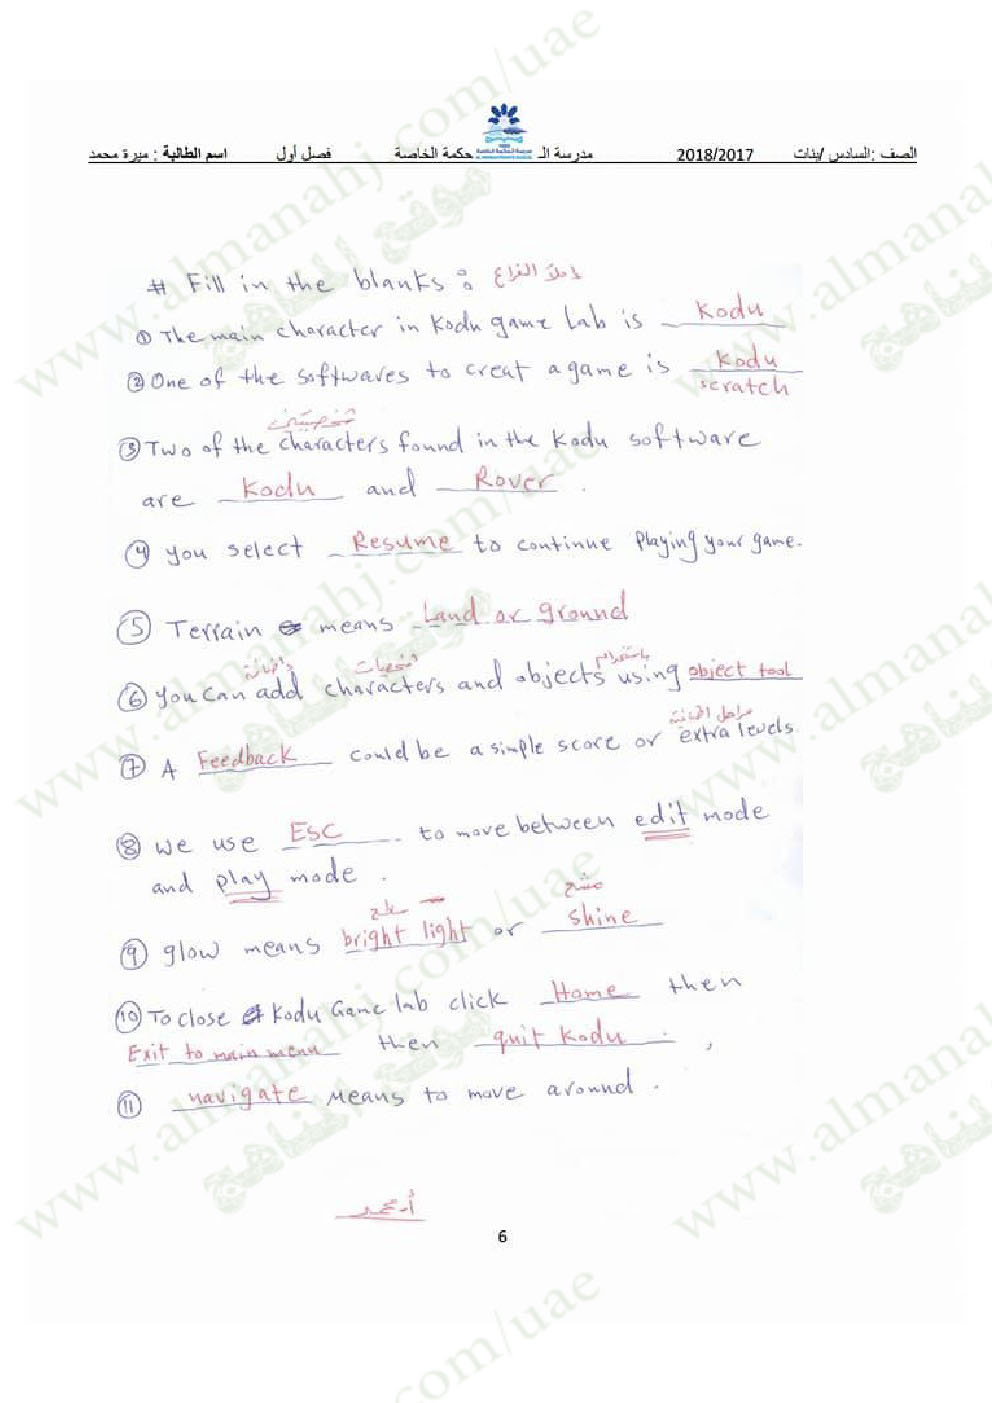 الصف :السادس /بنات 2018/2017 مدرسة الـ حكمة الخاصة فصل أول اسم الطالبة : ميرة محمد
# Fill in the blanks : املأ الفراغ
① The main character in Kodu game Lab is Kodu
② One of the softwares to creat a game is Kodu
scratch
③ Two of the characters found in the Kodu software
are Kodu and Rover .
④ you select Resume to continue playing your game.
⑤ Terrain means Land or ground
واضافة شخصيات باستخدام
⑥ you can add characters and objects using object tool
مراحل اضافية
⑦ A Feedback could be a simple score or extra levels.
⑧ we use ESC to move between edit mode
and play mode .
⑨ glow means bright light or shine
⑩ To close Kodu Game lab click Home then
Exit to main menu then quit kodu .,
⑪ navigate means to move around .
أ.محمد
6
www.almanahj.com/uae
موقع المناهج